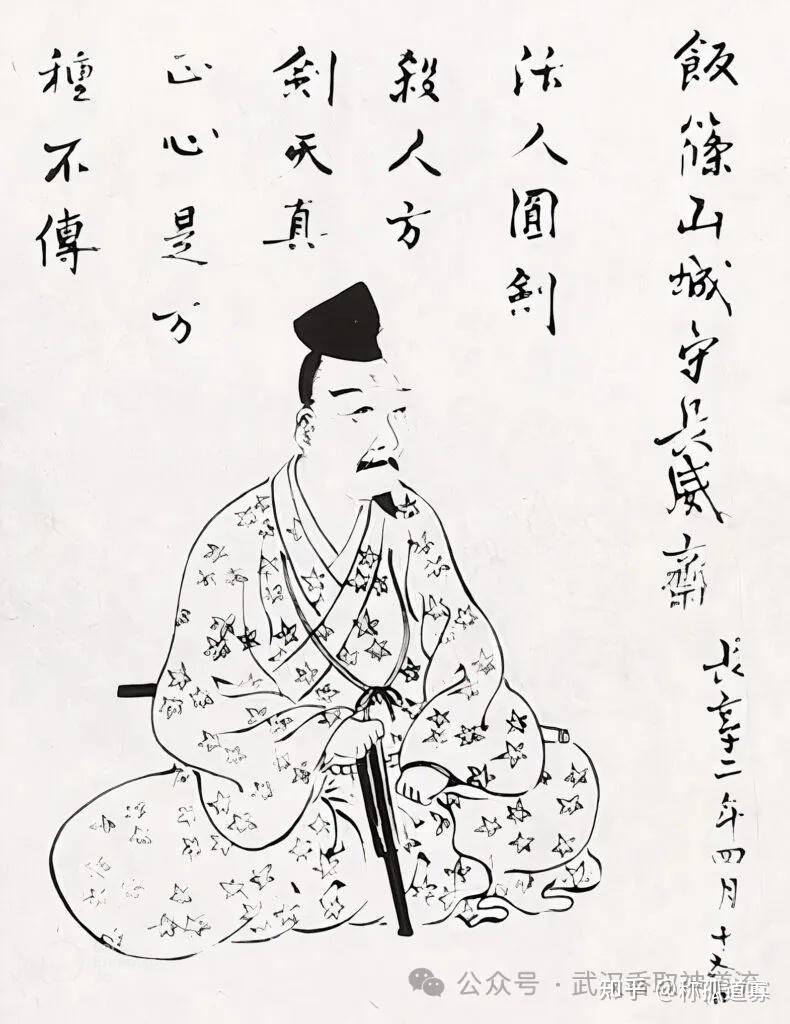 飯篠山城守長威齋
長享二年四月十
活人圓劍
殺人方
劍天真
正心是万
種不傳
公众号 · 武汉香取神道流
知乎 @称孤道寡